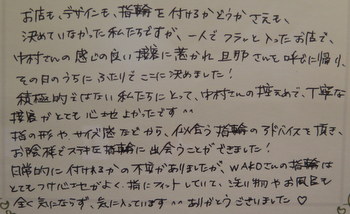 お店も、デザインも、指輪を付けるかどうかさえも、
決めていなかった私たちですが、一人でフラッと入ったお店で、
中村さんの感じの良い接客に惹かれ 旦那さんを呼びに帰り、
その日のうちにふたりでここに決めました！
積極的ではない私たちにとって、中村さんの控えめで、丁寧な
接客がとても心地よかったです^^
指の形やサイズ感などから、似合う指輪のアドバイスを頂き、
お陰様でステキな指輪に出会うことができました！
日常的に付けれるかの不安がありましたが、WAKOさんの指輪は
とてもつけ心地がよく、指にフィットしていて、洗い物やお風呂も
全く気にならず、気に入っています^^ ありがとうございました♡